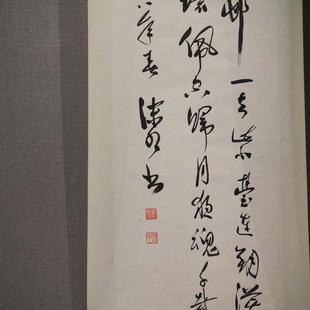 邨一去紫臺連朔漠
環佩空歸月夜魂千載
八年春書